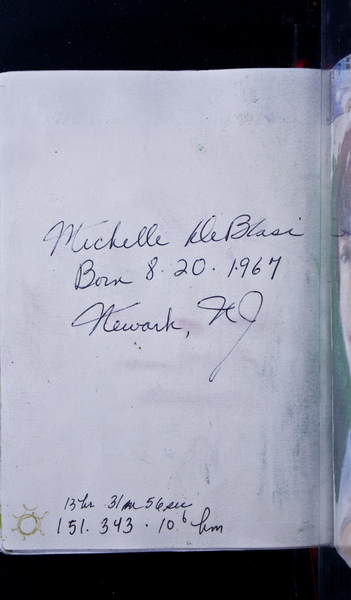 Michelle DeBlasi
Born 8.20.1967
Newark, NJ
13hr 31m 56sec
151.343.10⁶ km